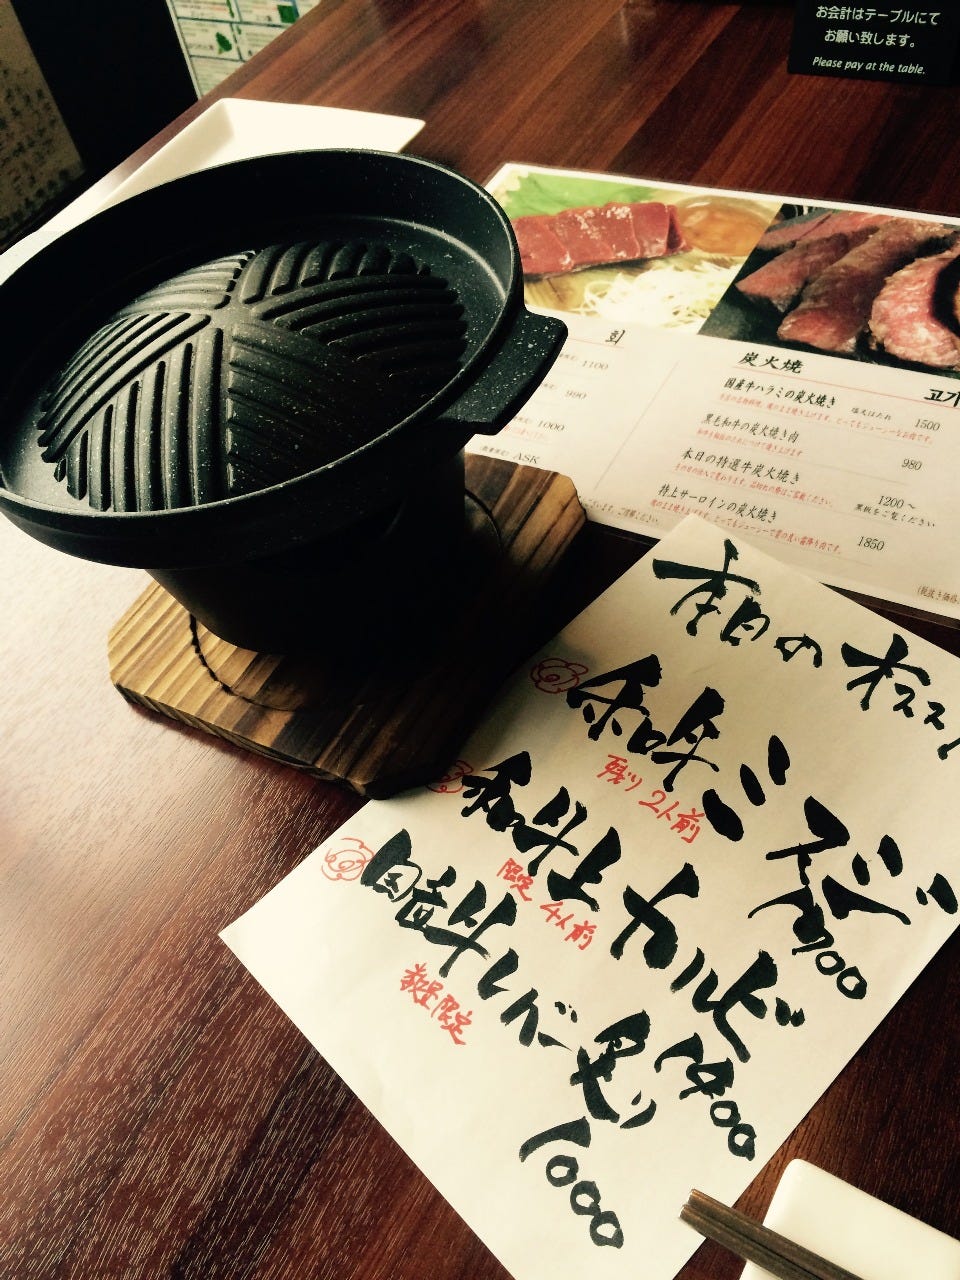 お会計はテーブルにて
お願い致します。
Please pay at the table.
회
1100
990
1000
ASK
炭火焼
고기
国産牛ハラミの炭火焼き 塩又はたれ 1500
黒毛和牛の炭火焼き肉 980
本日の特選牛炭火焼き 1200～
黒板をご覧ください
特上サーロインの炭火焼き 1850
本日のオススメ
赤味ミスジ
残り2人前
和牛上カルビ 1400
限定4人前
国産牛レバー炙り 1000
数量限定